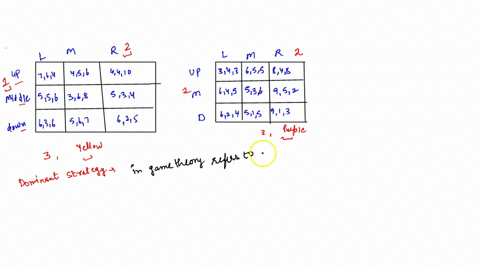 L M R 2
1 UP 7,6,4 4,5,6 4,4,10
Middle 5,5,6 3,6,8 5,3,4
down 6,3,6 5,6,7 6,2,5
3, Yellow
L M R 2
UP 3,4,3 6,5,5 8,4,8
1 M 6,4,5 5,3,6 9,5,2
D 6,2,4 5,1,5 9,1,3
3, Purple
Dominent Strategy → in game theory refers to